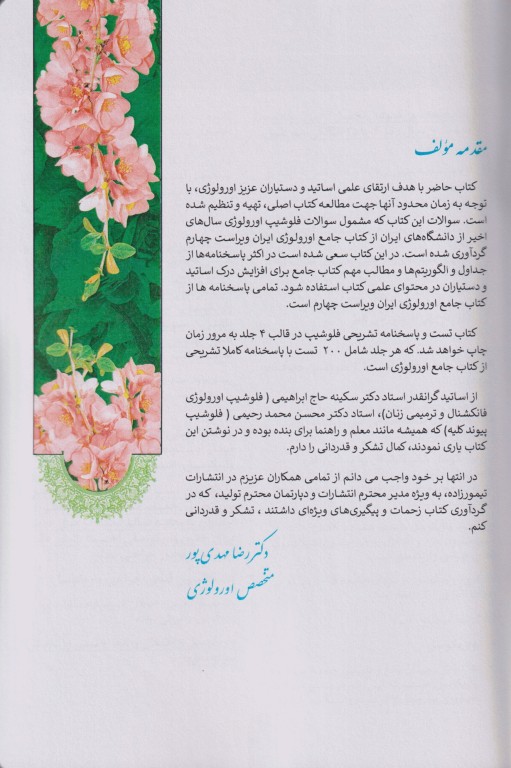 مقدمه مؤلف
کتاب حاضر با هدف ارتقای علمی اساتید و دستیاران عزیز اورولوژی، با
توجه به زمان محدود آنها جهت مطالعه کتاب اصلی، تهیه و تنظیم شده
است. سوالات این کتاب که مشمول سوالات فلوشیپ اورولوژی سال‌های
اخیر از دانشگاه‌های ایران از کتاب جامع اورولوژی ایران ویراست چهارم
گردآوری شده است. در این کتاب سعی شده است در اکثر پاسخنامه‌ها از
جداول و الگوریتم‌ها و مطالب مهم کتاب جامع برای افزایش درک اساتید
و دستیاران در محتوای علمی کتاب استفاده شود. تمامی پاسخنامه ها از
کتاب جامع اورولوژی ایران ویراست چهارم است.
کتاب تست و پاسخنامه تشریحی فلوشیپ در قالب ۴ جلد به مرور زمان
چاپ خواهد شد. که هر جلد شامل ۲۰۰ تست با پاسخنامه کاملا تشریحی
از کتاب جامع اورولوژی است.
از اساتید گرانقدر استاد دکتر سکینه حاج ابراهیمی ( فلوشیپ اورولوژی
فانکشنال و ترمیمی زنان)، استاد دکتر محسن محمد رحیمی ( فلوشیپ
پیوند کلیه) که همیشه مانند معلم و راهنما برای بنده بوده و در نوشتن این
کتاب یاری نمودند، کمال تشکر و قدردانی را دارم.
در انتها بر خود واجب می دانم از تمامی همکاران عزیزم در انتشارات
تیمورزاده، به ویژه مدیر محترم انتشارات و دپارتمان محترم تولید، که در
گردآوری کتاب زحمات و پیگیری‌های ویژه‌ای داشتند ، تشکر و قدردانی
کنم.
دکتر رضا مهدی‌پور
متخصص اورولوژی